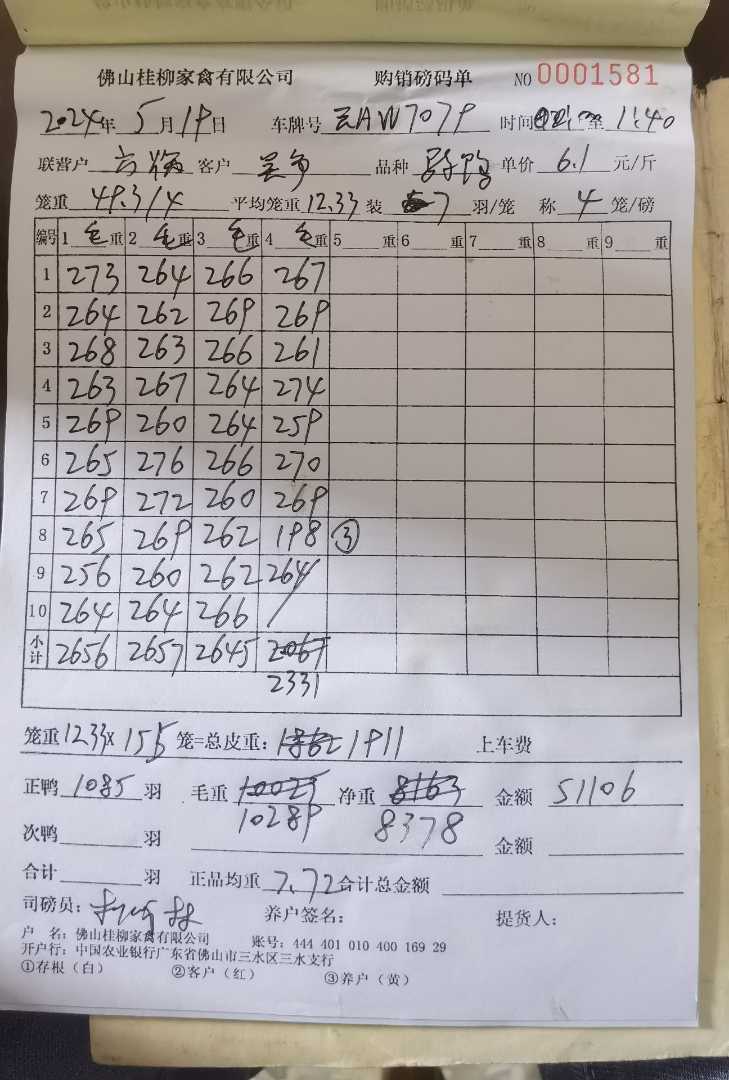 佛山桂柳家禽有限公司 购销磅码单 NO 0001581
2024年 5月19日 车牌号 云AW7079 时间 至 11:40
联营户 客户 品种 单价 6.1 元/斤
笼重 49.3/4 平均笼重 12.33 装 7 羽/笼 称 4 笼/磅
编号 1 毛重 2 毛重 3 毛重 4 毛重 5 重 6 重 7 重 8 重 9 重
1 273 264 266 267
2 264 262 269 269
3 268 263 266 261
4 263 267 264 274
5 269 260 264 259
6 265 276 266 270
7 269 272 260 269
8 265 269 262 198 ③
9 256 260 262 264
10 264 264 266 /
小计 2656 2657 2645 2067
2331
笼重 12.33× 155 笼=总皮重: 1862 1911 上车费
正鸭 1085 羽 毛重 10025 净重 8163 金额 51106
10289 8378
次鸭 羽 金额
合计 羽 正品均重 7.72 合计总金额
司磅员: 养户签名: 提货人:
户 名: 佛山桂柳家禽有限公司 账号: 444 401 010 400 169 29
开户行: 中国农业银行广东省佛山市三水区三水支行
①存根（白） ②客户（红） ③养户（黄）